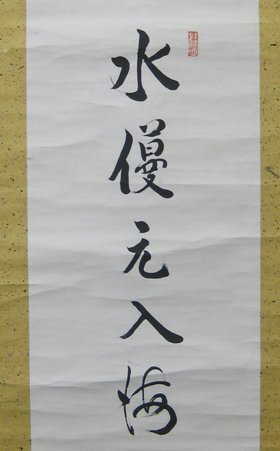 水元入海